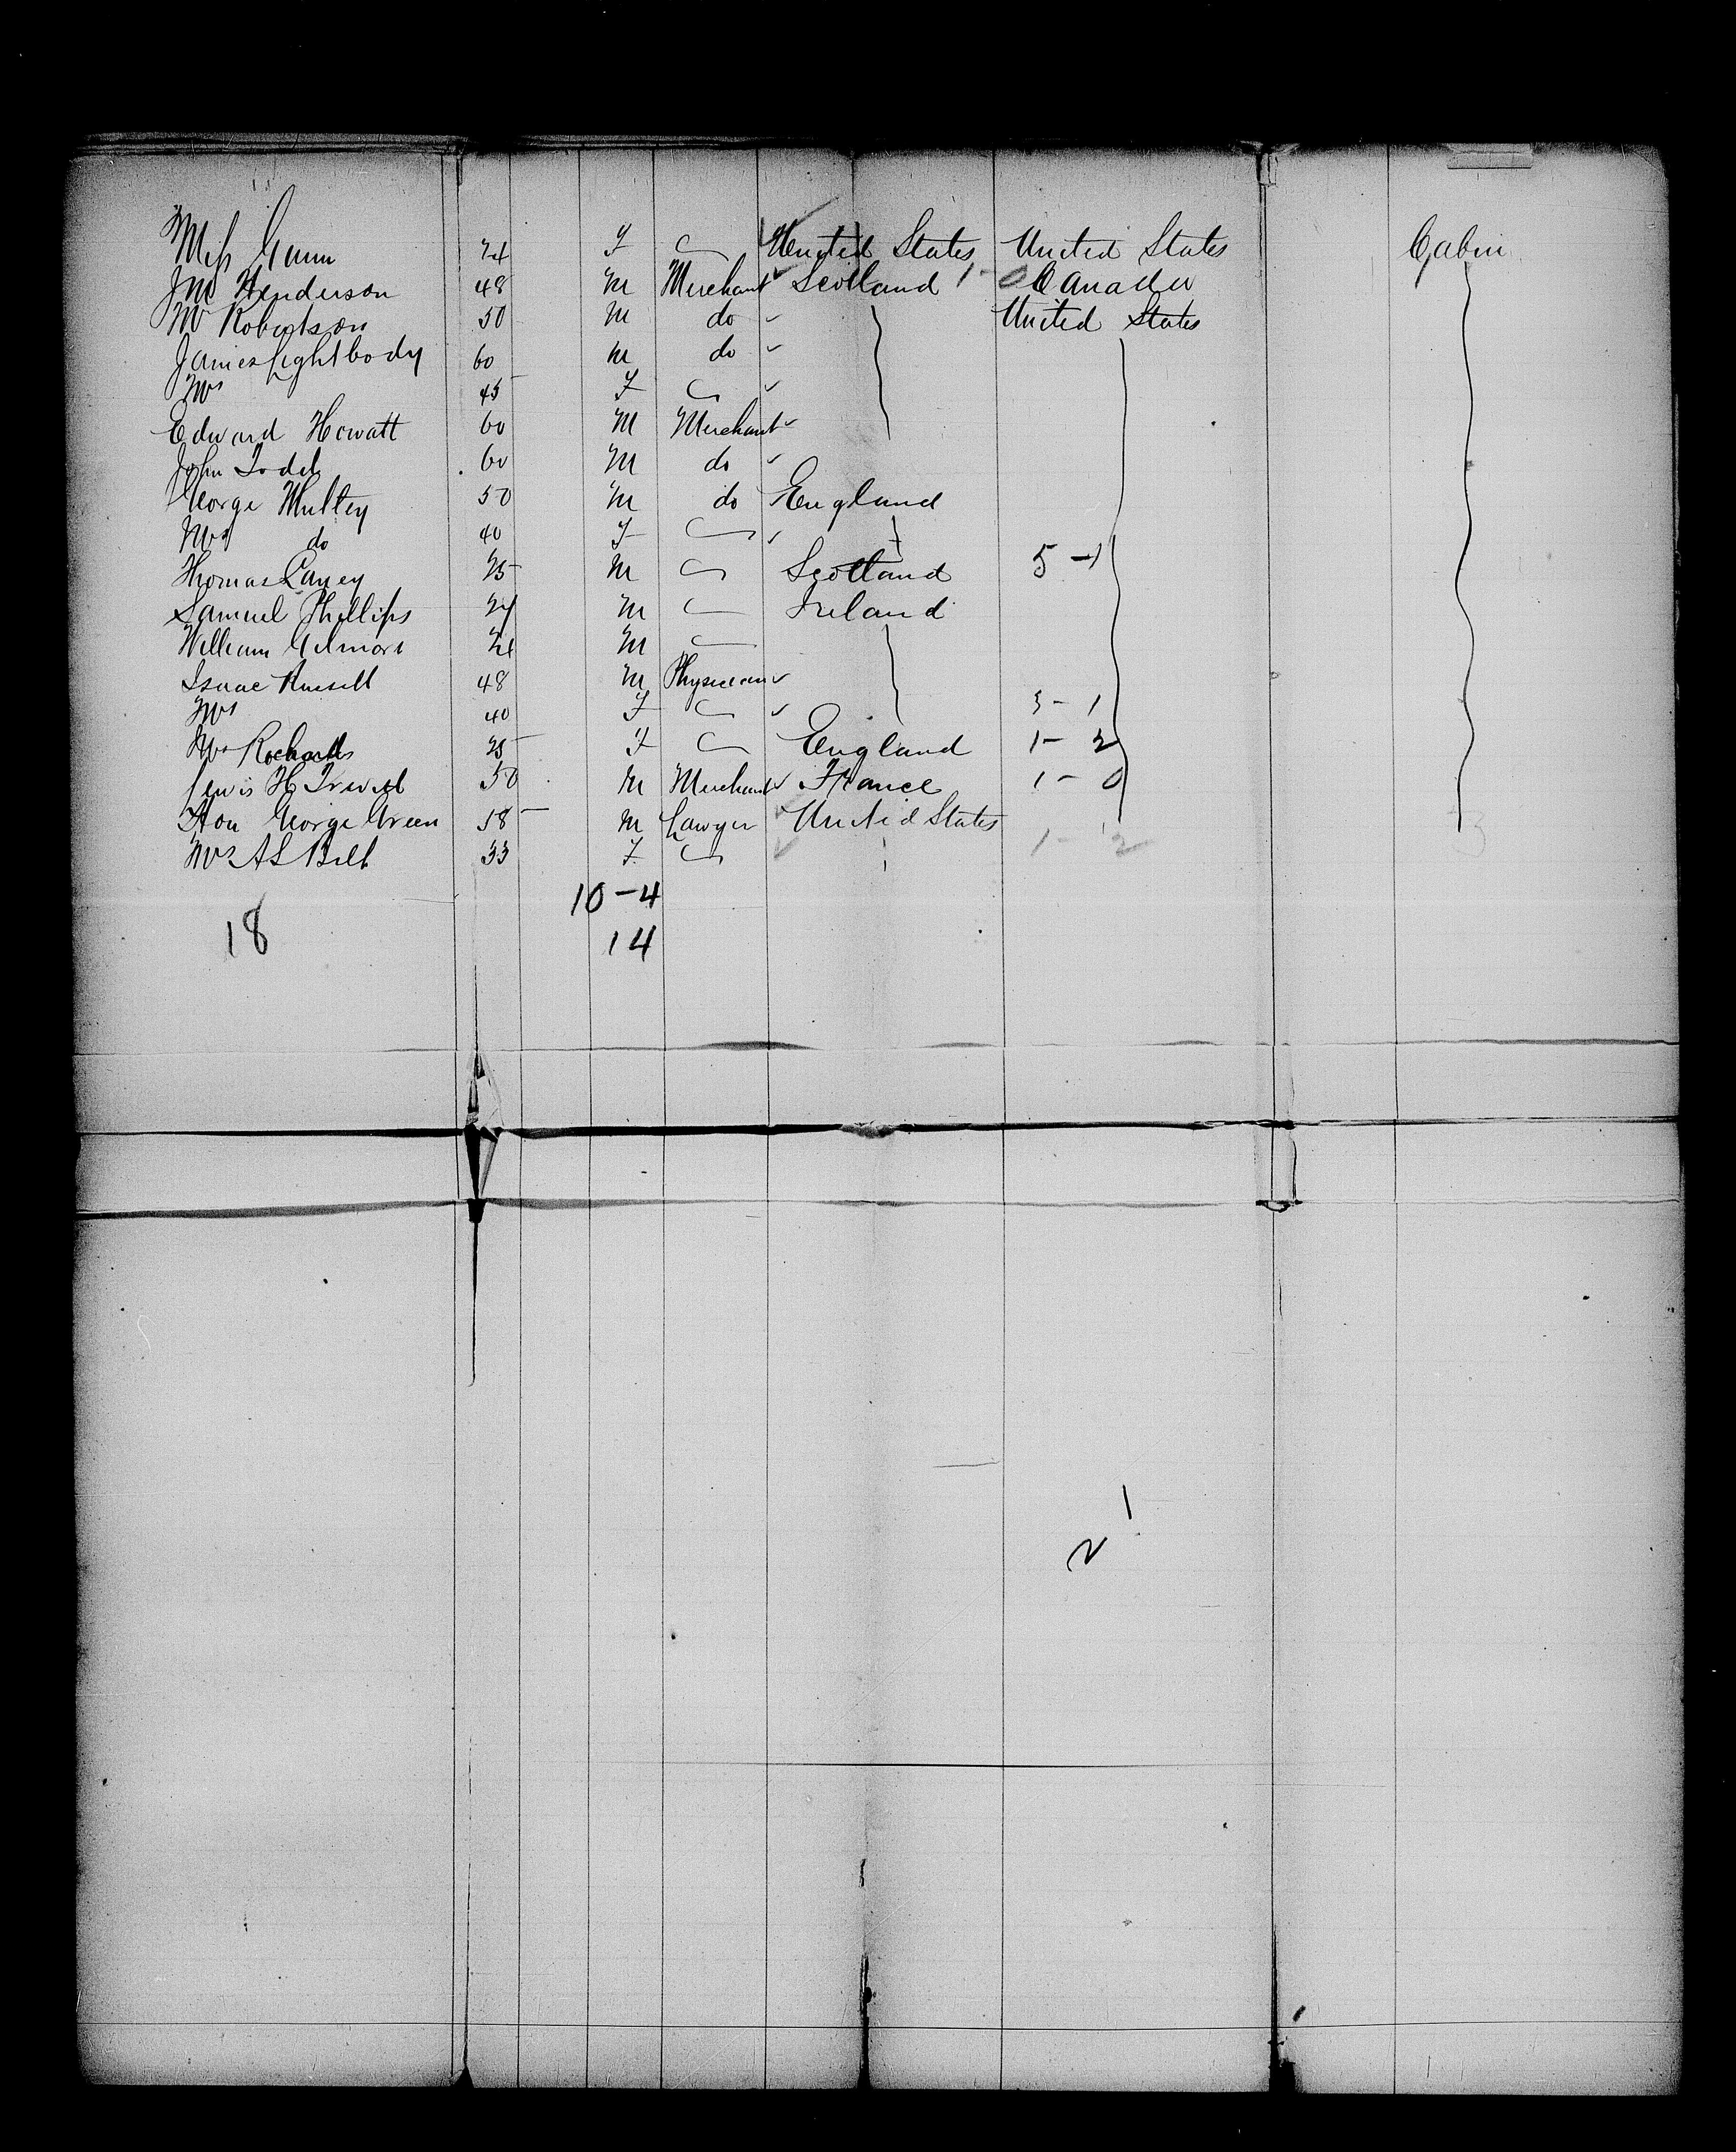 Miss Gunn 24 F United States United States Cabin
Jno Henderson 48 M Merchant Scotland 1-0 Canada
Mr Robertson 50 M do United States
James Lightbody 60 M do
Mrs 45 F
Edward Howatt 60 M Merchant
John Todd 60 M do
George Multey 50 M do England
Mrs do 40 F
Thomas 25 M Scotland 5-1
Samuel Phillips 24 M Ireland
William Gilmore 24 M
Isaac Russell 48 M Physician
Mrs 40 F 3-1
Mrs Rochards 25 F England 1-2
Lewis H 50 M Merchant France 1-0
Hon George Green 58 M Lawyer United States
Mrs AS Bell 33 F 1-2
10-4
18 14
1
2